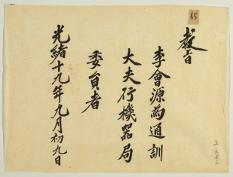 教旨
李會源為通訓
大夫行機器局
委員者
光緒十九年九月初九日